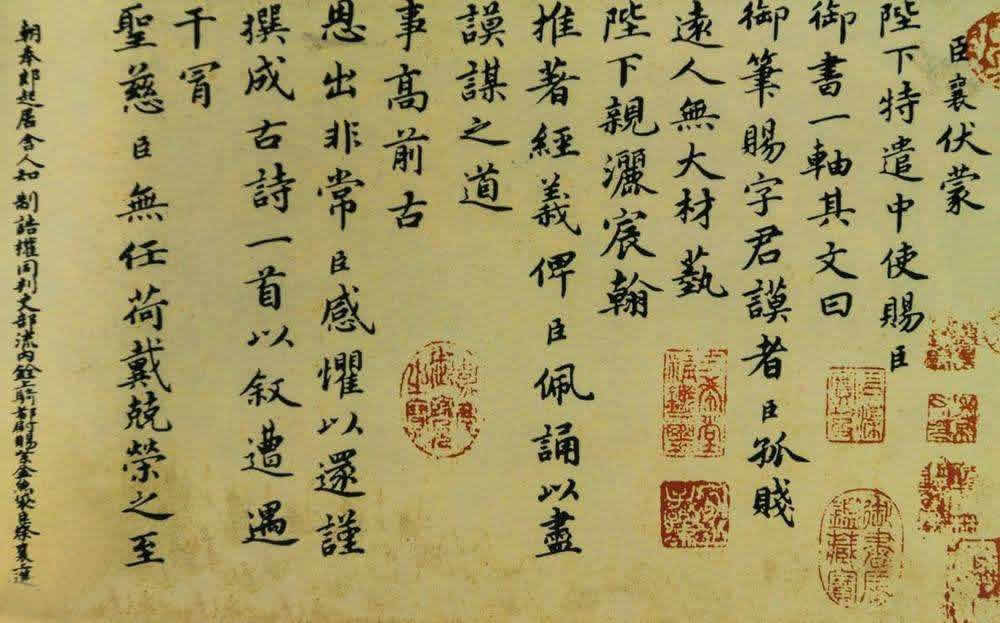 臣襄伏蒙
陛下特遣中使賜臣
御書一軸其文曰
御筆賜字君謨者臣孤賤
遠人無大材藝
陛下親灑宸翰
推著經義俾臣佩誦以盡
謨謀之道
事高前古
恩出非常臣感懼以還謹
撰成古詩一首以叙遭遇
干冒
聖慈臣無任荷戴兢榮之至
朝奉郎起居舍人知制誥權同判吏部流內銓上騎都尉賜紫金魚袋臣蔡襄上進
御書房鑑藏寶
三希堂精鑑璽
宜子孫